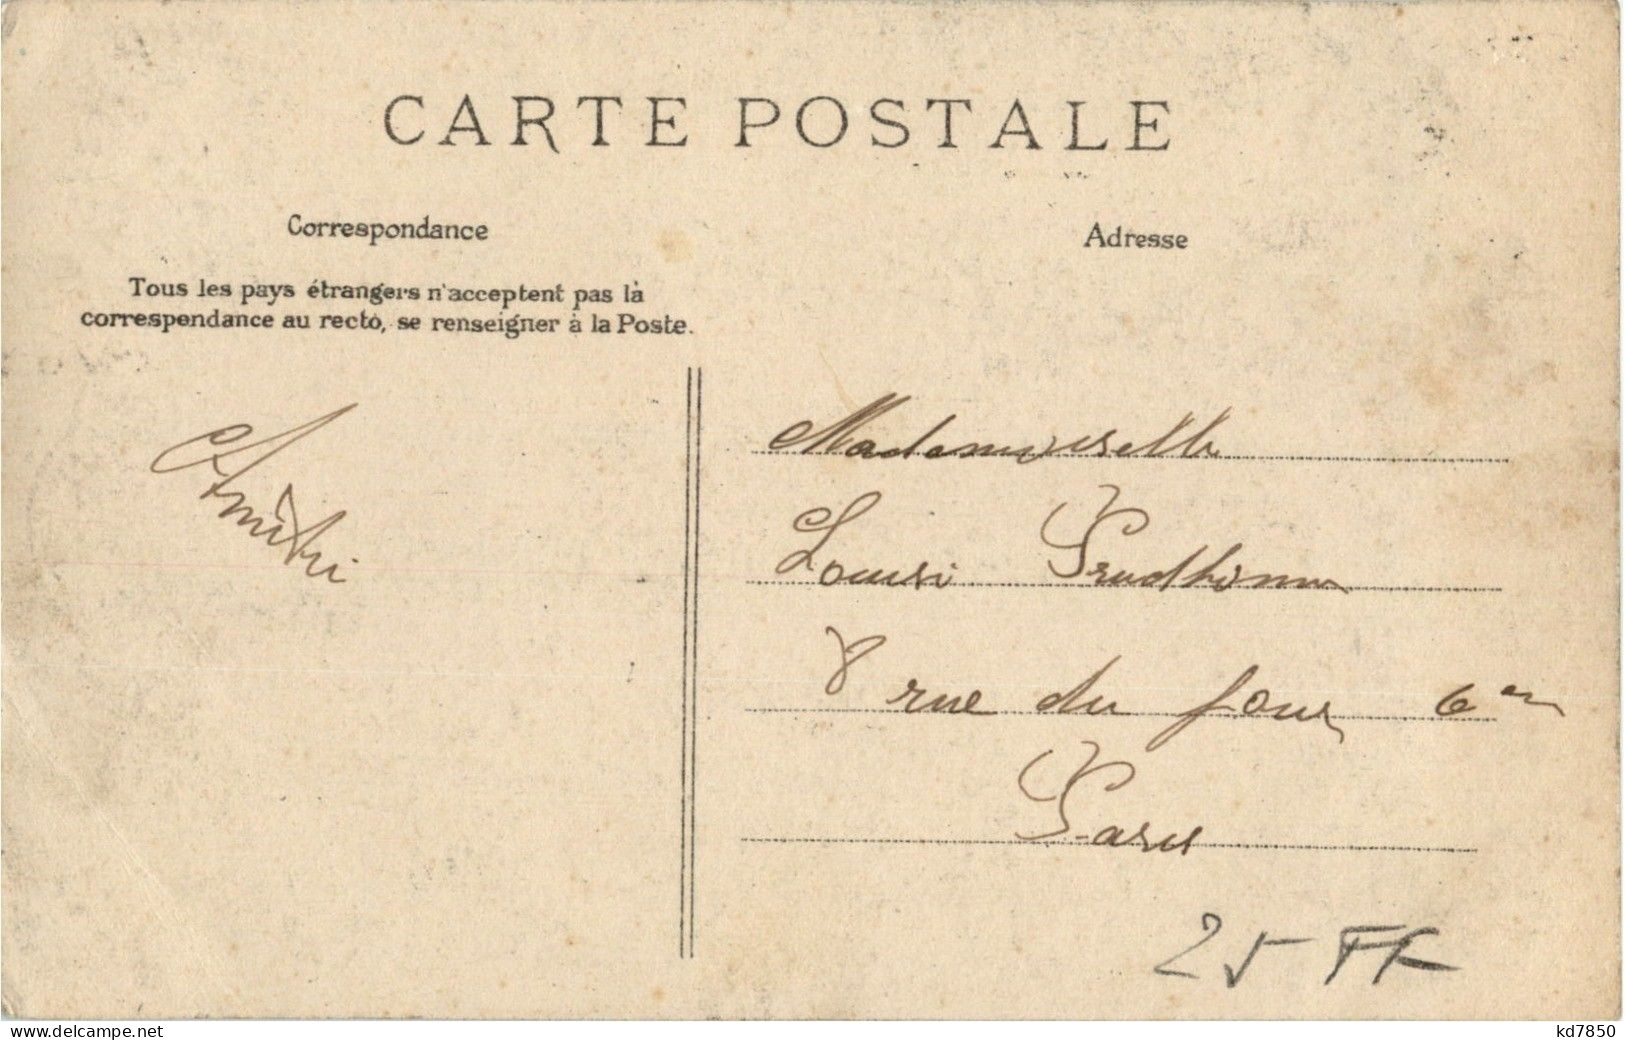 CARTE POSTALE
Correspondance
Tous les pays étrangers n'acceptent pas la
correspondance au recto, se renseigner à la Poste.
Adresse
Mademoiselle
Prudhomme
8 rue du four 6
Paris
25 FF
www.delcampe.net
kd7850